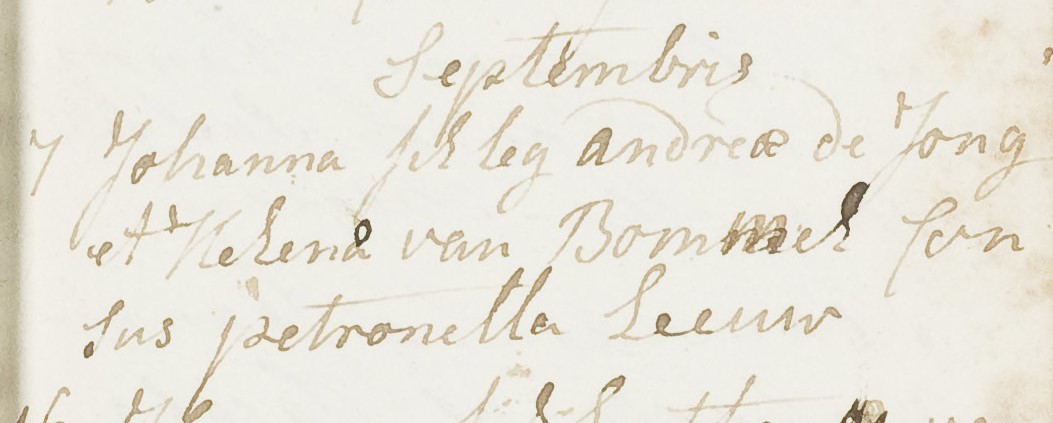 Septembris
7 Johanna fil leg andreæ de Jong
et Helena van Bommel Sen
sus petronella Leeuw